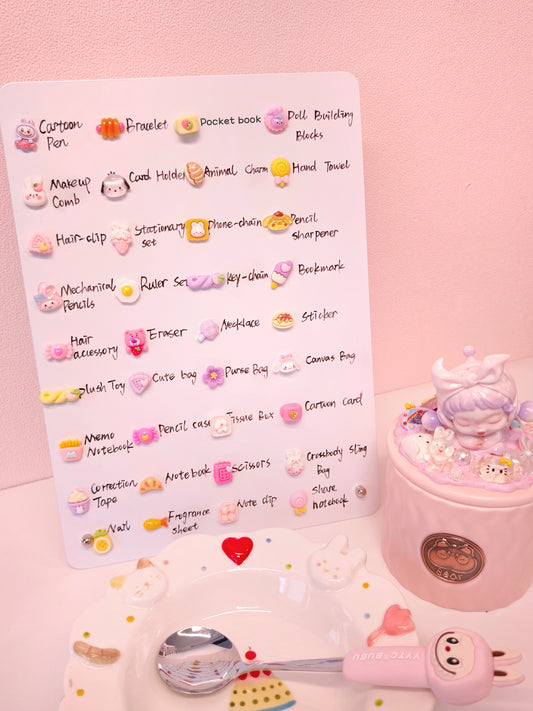 Cartoon Pen
Bracelet
Pocket book
Doll Building Blocks
Makeup Comb
Card Holder
Animal Charm
Hand Towel
Hair-clip
Stationary set
Phone-chain
Pencil sharpener
Mechanical Pencils
Ruler Set
key-chain
Bookmark
Hair accessory
Eraser
Necklace
Sticker
Plush Toy
Cute bag
Purse Bag
Canvas Bag
Memo Notebook
Pencil case
Tissue Box
Cartoon Card
Correction Tape
Notebook
Scissors
Crossbody Sling Bag
Nail
Fragrance sheet
Note clip
Share notebook
BEAR
YYTC*BUBU